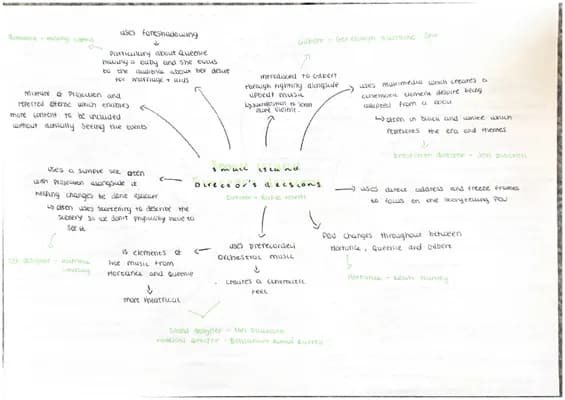 uses foreshadowing
particularly about Queenie
having a baby and she turns
to the audience about her desire
for marriage + kids
introduced to Gilbert
through fighting alongside
upbeat music
more violent
uses multimedia which creates a
cinematic element despite being
adapted from a book
often in black and white which
represents the era and themes
Mixture of Projection and
which enables
more content to be included
without actually seeing the events
small island
Director's decisions
Director - Rufus Norris
uses a simple set often
with projection alongside it
making changes to be done quicker
often uses
to describe the
scenery so we don't physically have to
see it
Set designer - Katrina
Lindsay
uses direct address and freeze frames
to focus on the storytelling POV
POV changes throughout between
Hortense, Queenie and Gilbert
Hortense - Leah Harvey
uses prerecorded
Orchestral music
creates a cinematic
feel
elements of
live music from
Hortense and Queenie
more theatrical
Sound designer - Ian
Benjamin Kwasi Burrell